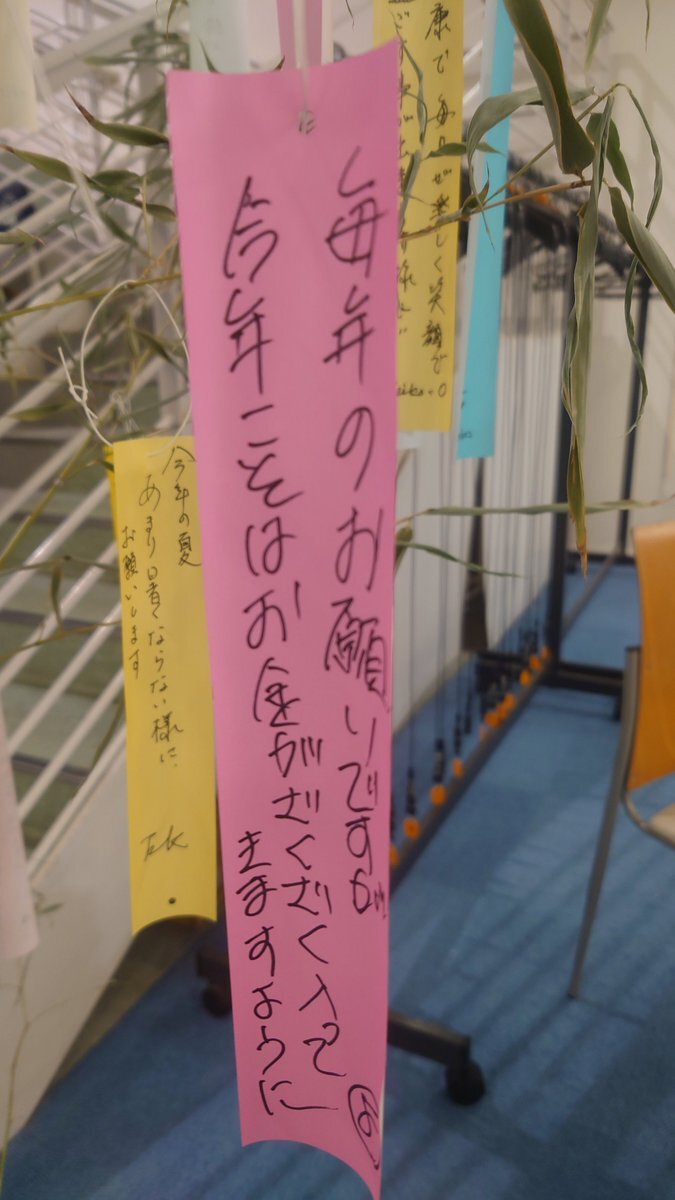 毎年のお願いですが
今年こそはお金がざくざく入って
きますように
お
今年の夏
あまり暑くならない様に、
お願いします
康で毎日が楽しく笑顔で